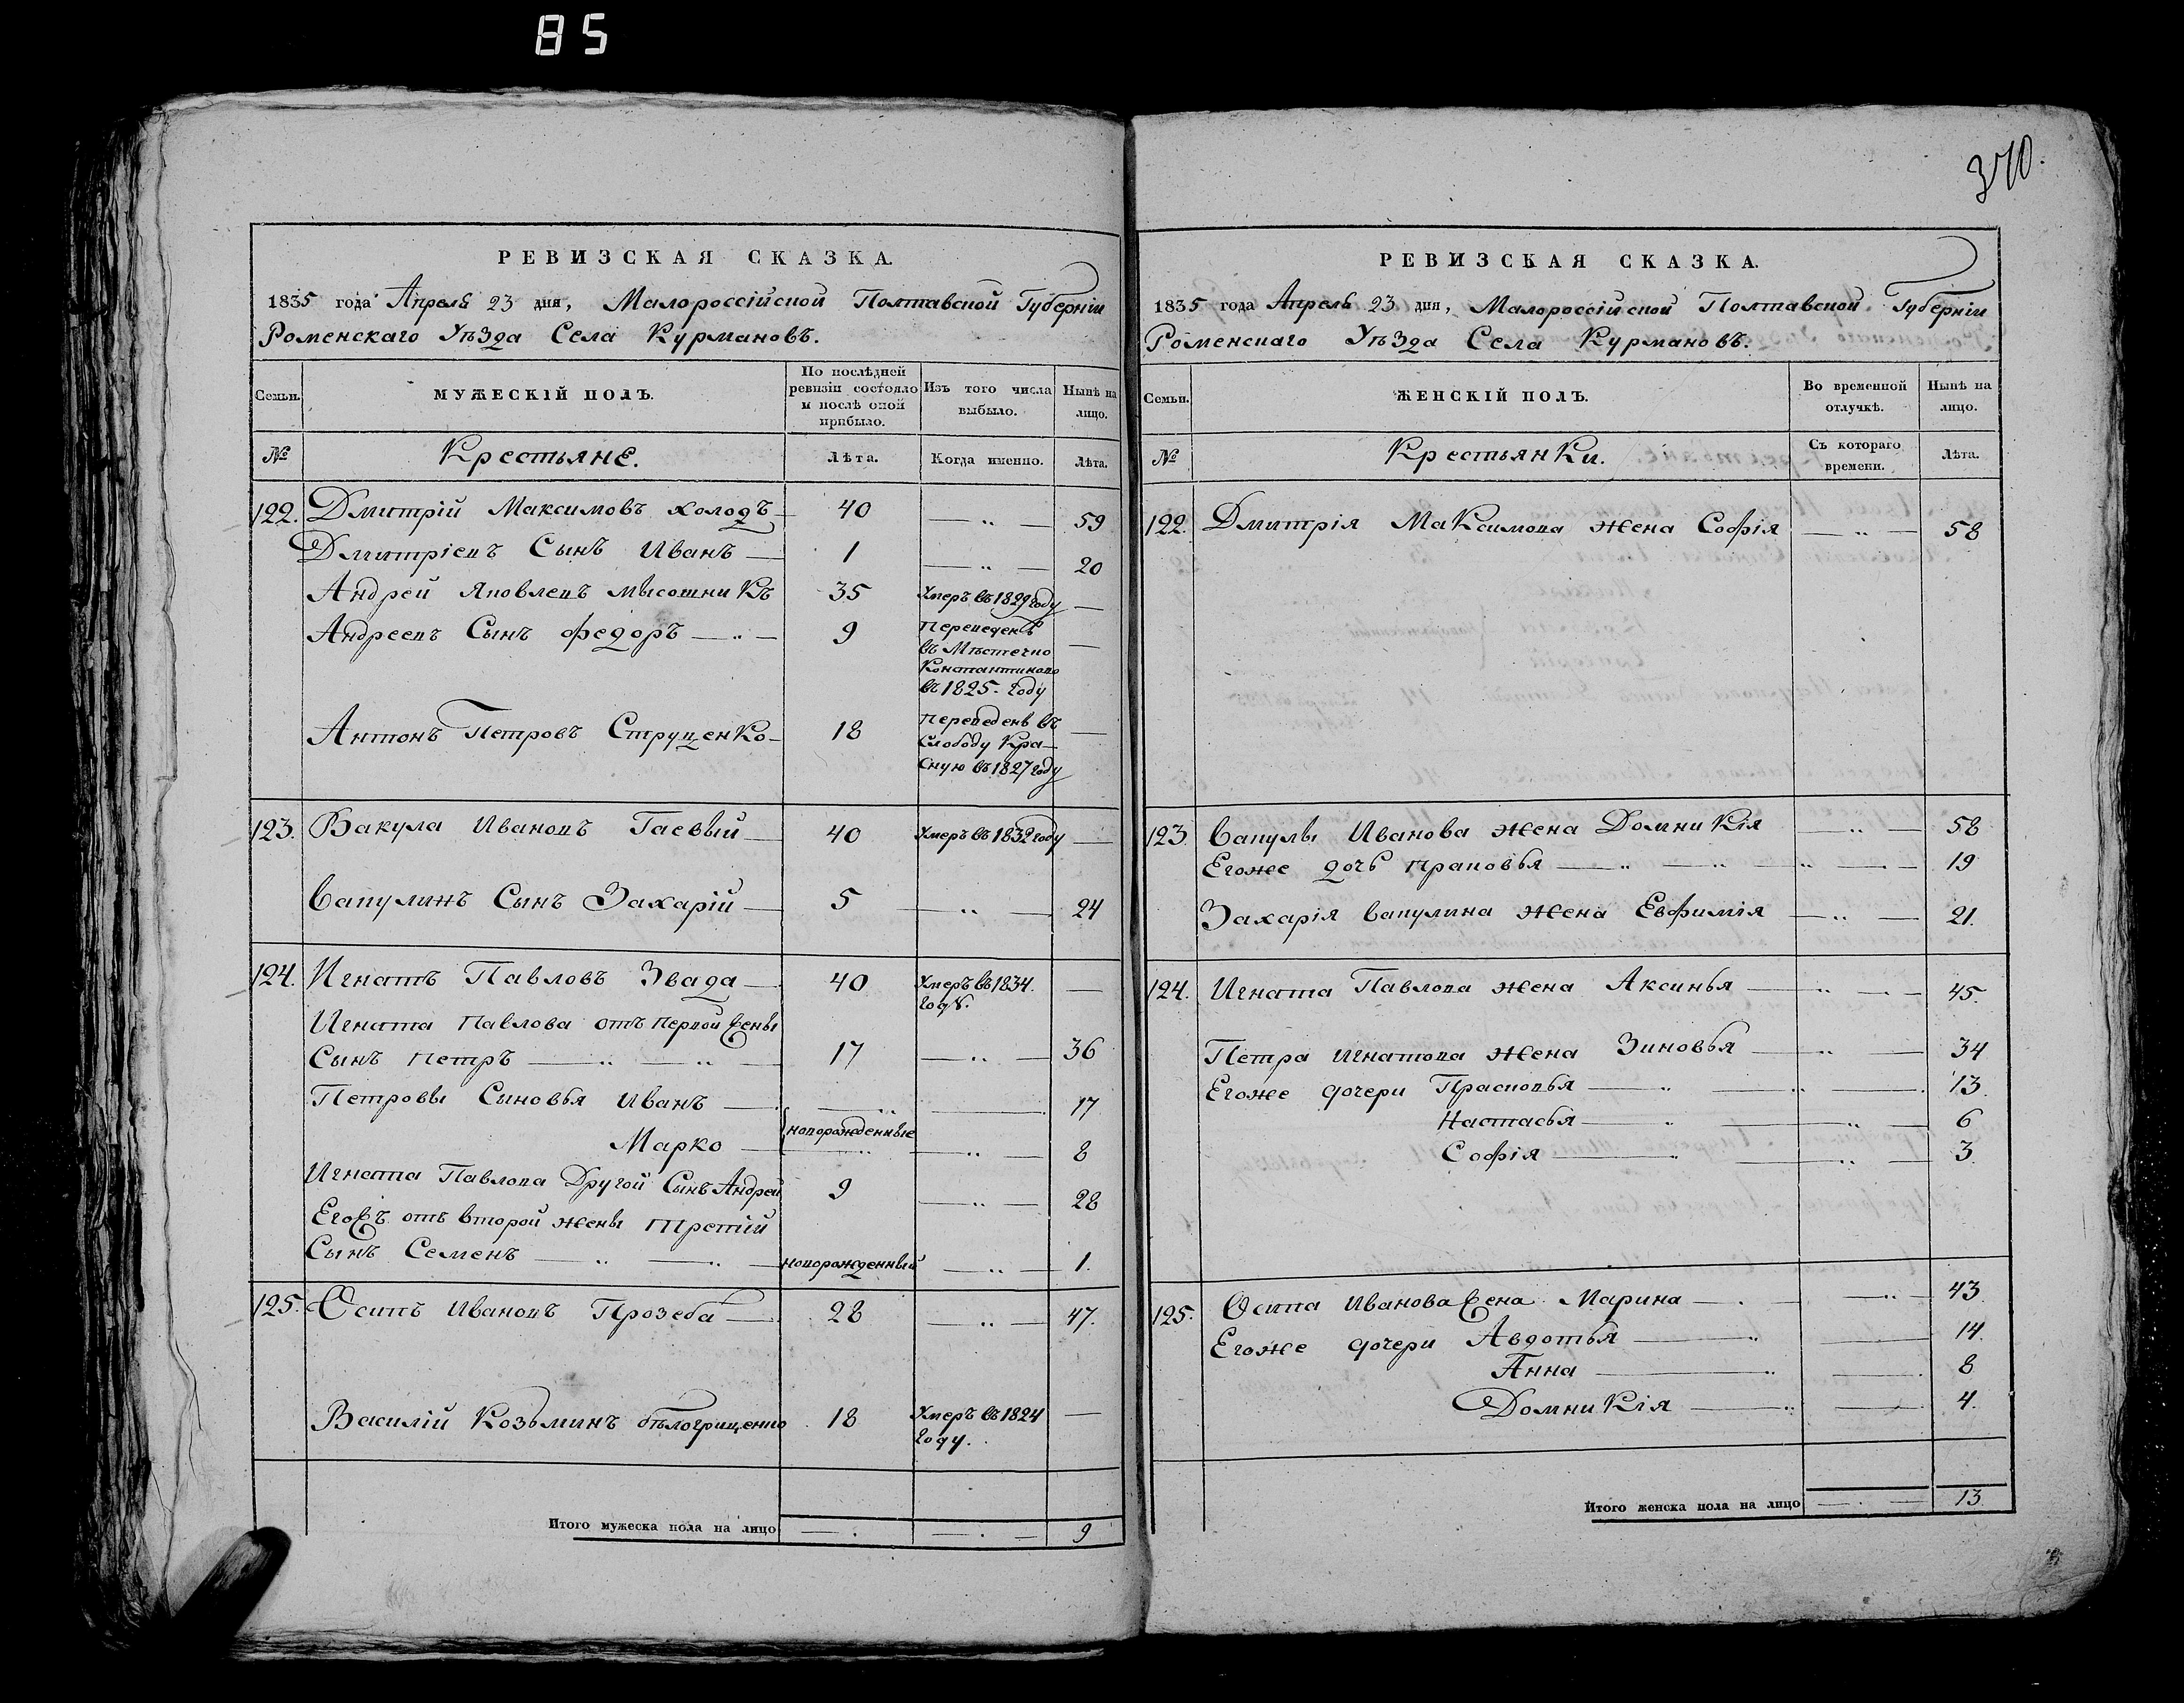 85
370.
РЕВИЗСКАЯ СКАЗКА.
1835 года Апреля 23 дня, Малороссійской Полтавской Губерніи
Роменскаго Уѣзда Села Курмановъ.
Семьи.
МУЖЕСКІЙ ПОЛЪ.
По послѣдней ревизіи состояло и послѣ оной прибыло.
Изъ того числа выбыло.
Нынѣ на лицо.
№ Крестьяне. Лѣта. Когда именно. Лѣта.
122. Дмитрій Максимовъ холодъ — 40 — „ — 59
Дмитріевъ Сынъ Иванъ — 1 — „ — 20
Андрей Яковлевъ Мисошникъ 35 Умеръ въ 1829 году —
Андреевъ Сынъ Федоръ — „ — 9 Переведенъ въ Мѣстечко Константиново въ 1825. году —
Антонъ Петровъ Струценко — 18 Переведенъ въ Слободу Красную въ 1827 году —
123. Вакула Ивановъ Гаевый — 40 Умеръ въ 1832 году —
Вакулинъ Сынъ Захарій — 5 — „ — 24
124. Игнатъ Павловъ Звада — 40 Умеръ въ 1834. году. —
Игната Павлова отъ первой жены
Сынъ Петръ — „ — „ — 17 — „ — 36
Петровы Сыновья Иванъ — новорожденные — 17
Марко — „ — „ — 8
Игната Павлова Другой Сынъ Андрей 9 — „ — 28
Егожъ отъ второй жены третій
Сынъ Семенъ — „ — „ — новорожденный — „ — 1.
125. Осипъ Ивановъ Прозеба — 28 — „ — 47.
Василій Козьминъ Бѣлогрищенко 18 Умеръ въ 1824 году. —
Итого мужеска пола на лицо — . — — . — 9
РЕВИЗСКАЯ СКАЗКА.
1835 года Апреля 23 дня, Малороссійской Полтавской Губерніи
Роменскаго Уѣзда Села Курмановъ.
Семьи.
ЖЕНСКІЙ ПОЛЪ.
Во временной отлучкѣ.
Нынѣ на лицо.
№ Крестьянки. Съ котораго времени. Лѣта.
122. Дмитрія Максимова жена Софія — „ — 58
123. Вакулы Иванова жена Домникія — „ — 58
Егоже дочь Прасковья — „ — „ — „ — 19
Захарія Вакулина жена Евфимія — „ — 21.
124. Игната Павлова жена Аксинья — „ — 45.
Петра Игнатова жена Зиновья — „ — 34
Егоже дочери Прасковья — „ — „ — 13.
Настасья — „ — „ — 6
Софія — „ — „ — 3
125. Осипа Иванова жена Марина — . — „ — 43
Егоже дочери Авдотья — „ — 14.
Анна — „ — 8
Домникія — „ — 4.
Итого женска пола на лицо — . — 13